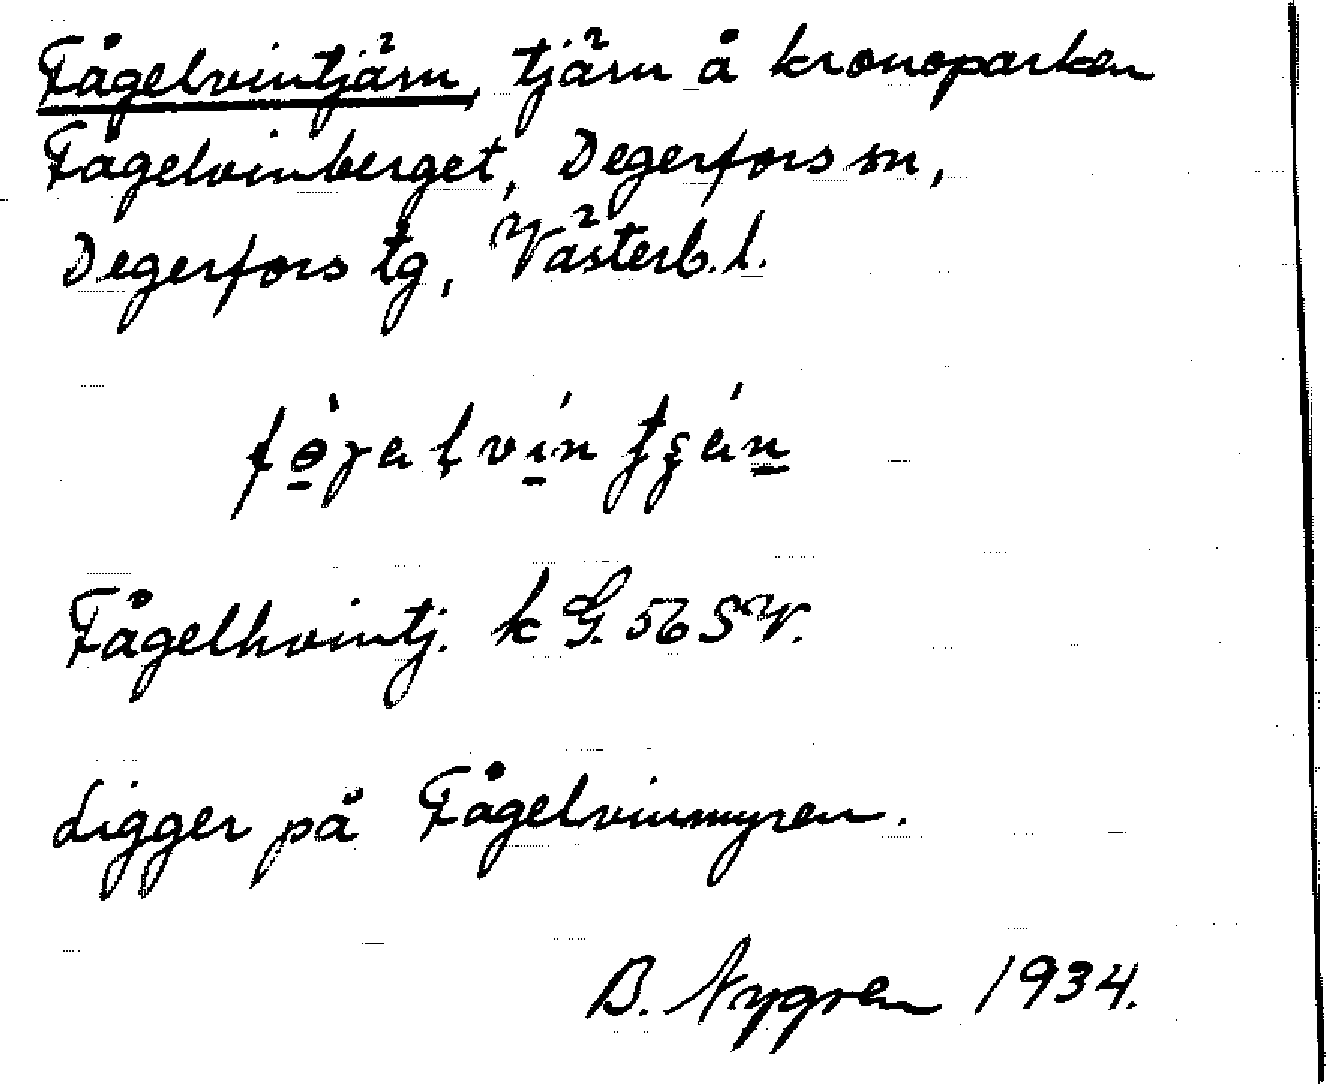 Fågelvintjärn, tjärn å kronoparken
Fågelvinberget, Degerfors sn,
Degerfors tg, Västerb. l.
Fågelhvintj. k G. 56 SV.
Ligger på Fågelvinmyren.
B. Nygren 1934.